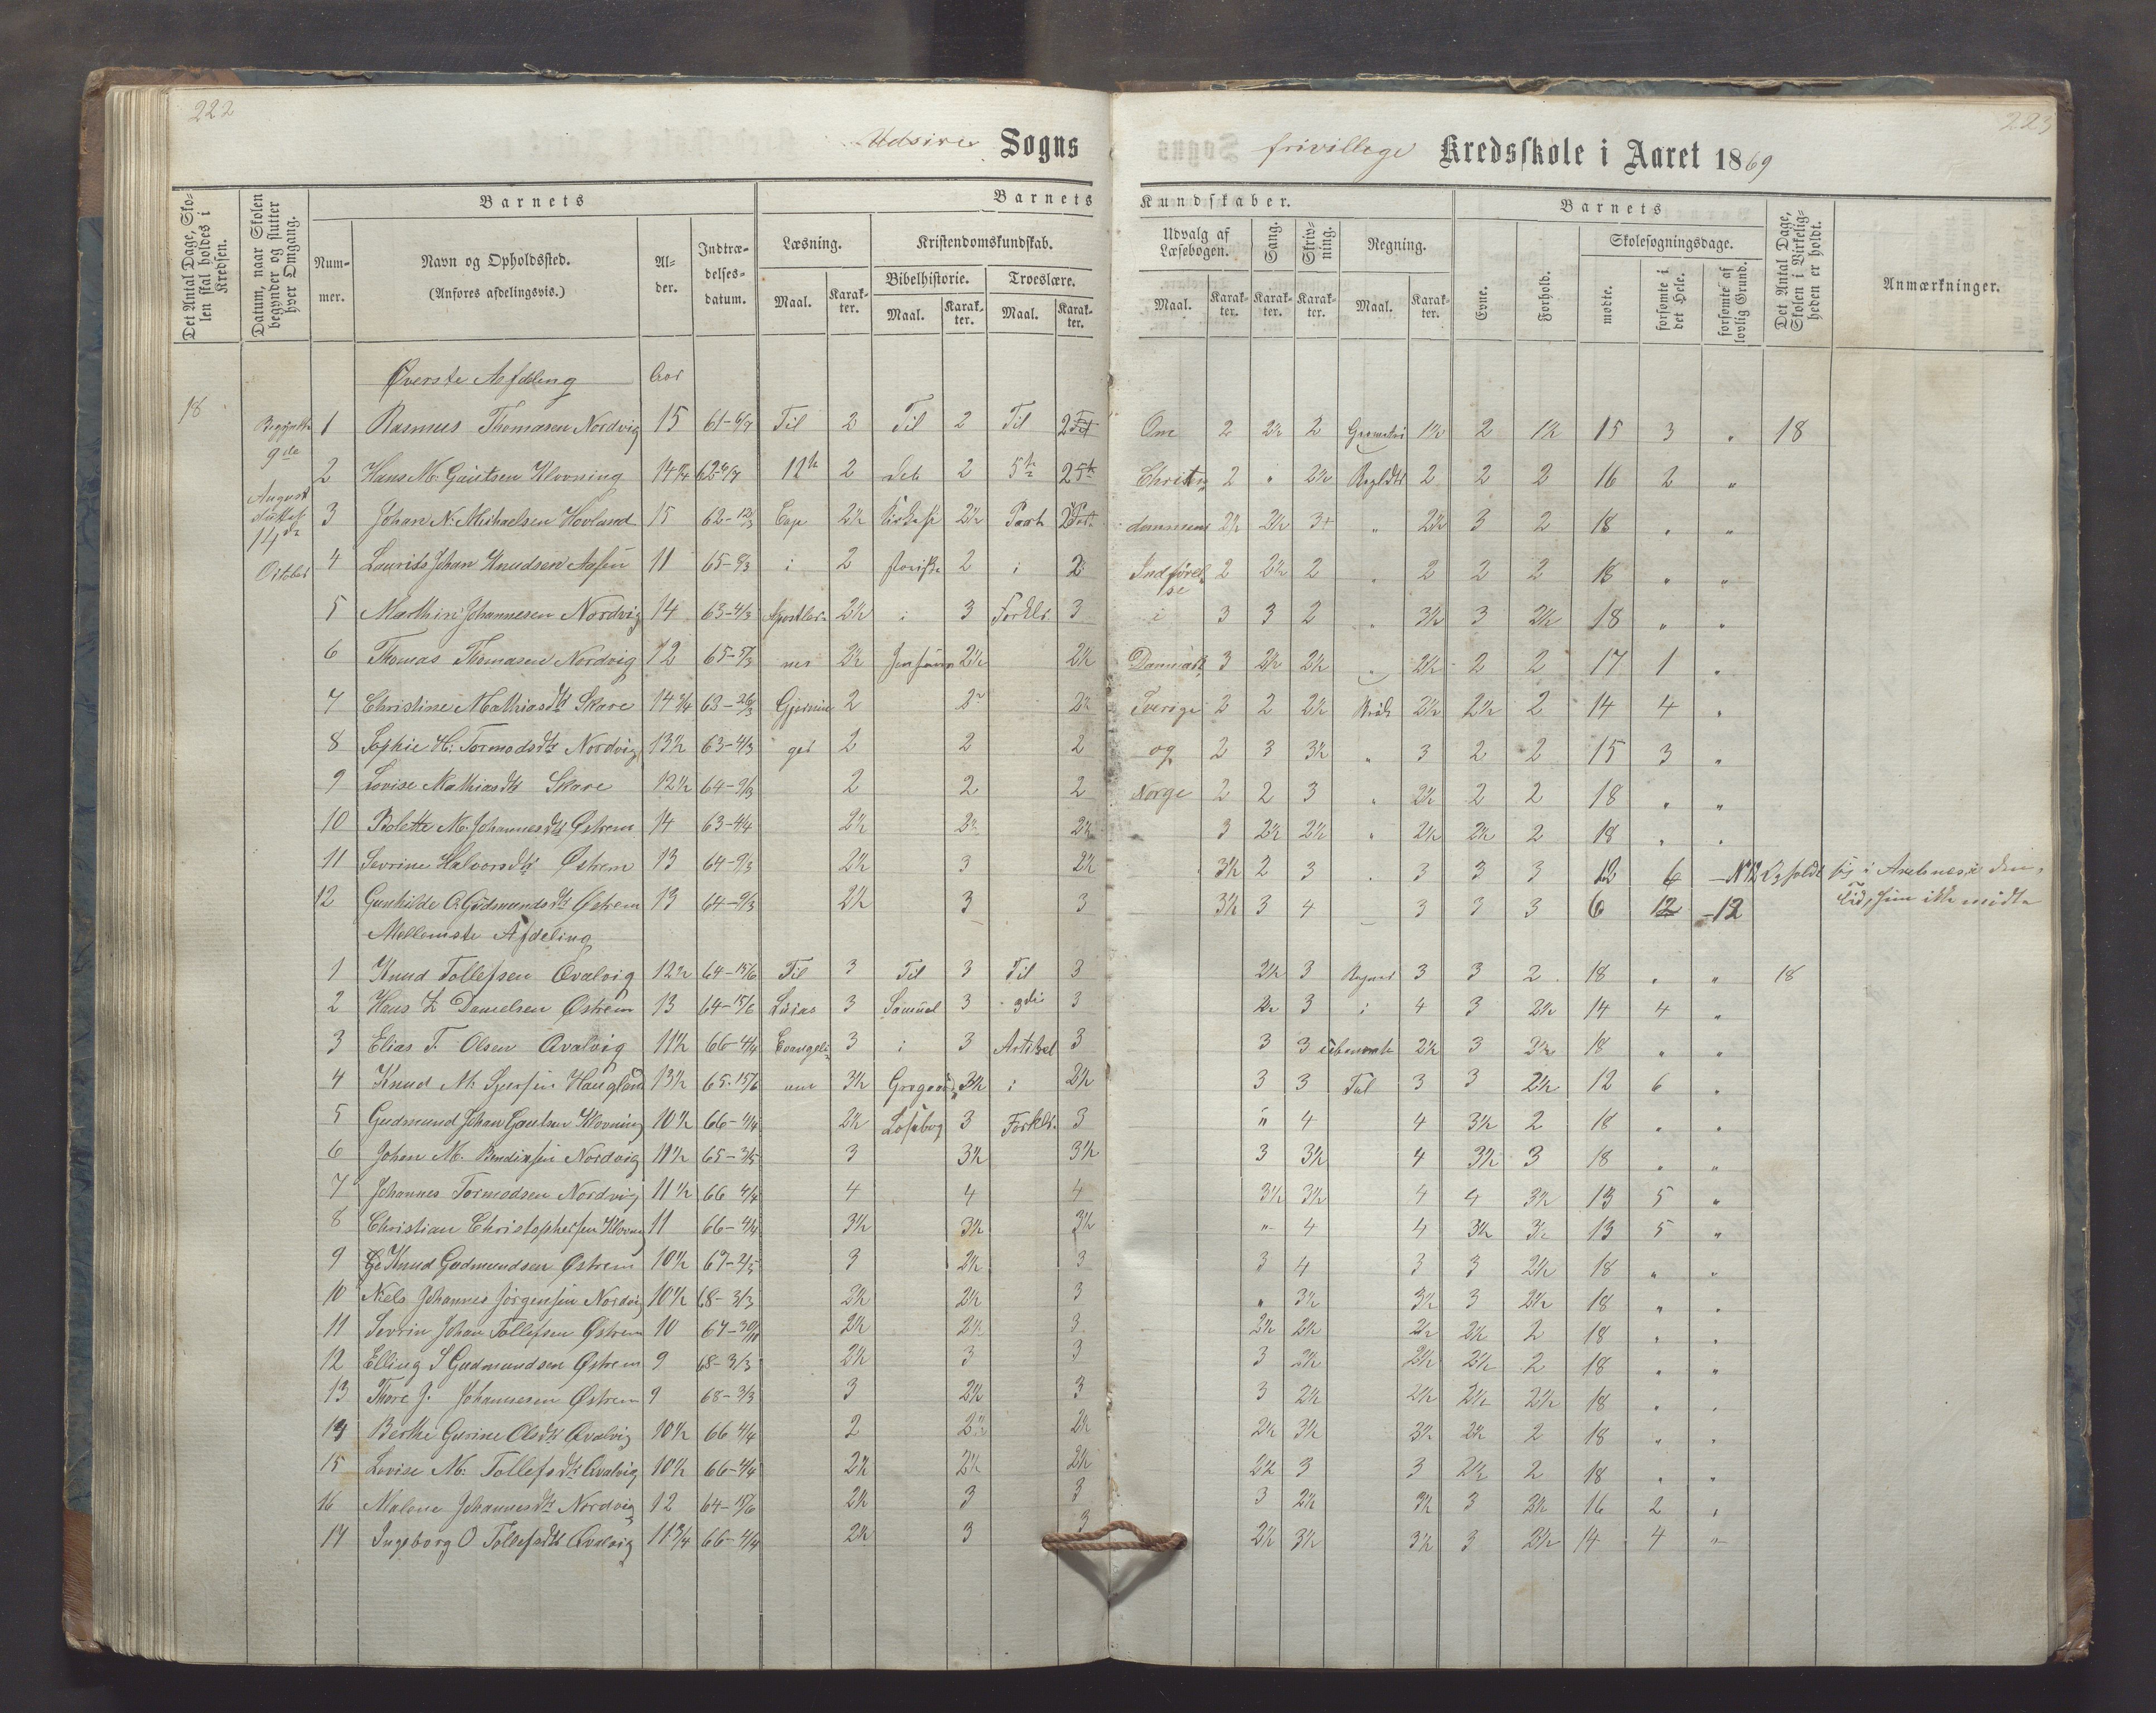 222
223
Udsire Sogns
frivillege Kredsskole i Aaret 1869
Det Antal Dage, Skolen skal holdes i Kredsen.
Datum, naar Skolen begynder og slutter hver Omgang.
Barnets
Nummer.
Navn og Opholdssted.
(Anføres afdelingsvis.)
Alder.
Indtrædelsesdatum.
Barnets
Læsning.
Maal. Karakter.
Kristendomskundskab.
Bibelhistorie.
Maal. Karakter.
Troeslære.
Maal. Karakter.
Kundskaber.
Udvalg af Læsebogen.
Maal. Karakter.
Sang.
Karakter.
Skrivning.
Karakter.
Regning.
Maal. Karakter.
Barnets
Evne.
Forhold.
Skolesøgningsdage.
mødte.
forsømte i det Hele.
forsømte af lovlig Grund.
Det Antal Dage, Skolen i Virkeligheden er holdt.
Anmærkninger.
Øverste Afdeling Aar
18
9de
August
14de
October
1 Rasmus Thomasen Nordvig 15 61-6/7 Til 2 Til 2 Til 2 Om 2 2½ 2 Geometri 1½ 2 1½ 15 3 " 18
2 Hans M. Gautsen Klovning 14¼ 62-4/7 12te 2 det 2 5te 2 Christen 2 " 2½ 2 2 2 16 2 "
3 Johan N. Michaelsen Hovland 15 62-12/3 Cap 2½ 2½ Part 2 dommens 2½ 2½ 3+ " 2½ 3 2 18 " "
4 Laurits Johan Knudsen 11 65-9/3 i 2 2 i 2 Indførelse 2 2½ 2 " 2 2 2 18 " "
5 Marthin Johannesen Nordvig 14 63-4/3 Apostler 2½ i 3 Forklr. 3 i 3 3 2 " 3½ 3 2½ 18 " "
6 Thomas Thomasen Nordvig 12 65-7/3 nes 2½ 2½ 2½ Danmark 3 2½ 2½ " 2½ 2 2 17 1 "
7 Christine Mathiasdtr Skare 14¾ 63-26/3 Gjerninger 2 2 2½ Sverige 2 2 2½ 2½ 2½ 2 14 4 "
8 Sophie H. Tormodsdtr Nordvig 13½ 63-4/3 2 2 2 og 2 3 3½ " 3 2 2 15 3 "
9 Lovise Mathiasdtr Skare 12½ 64-9/3 2 2 2 Norge 2 2 3 " 2½ 2 2 18 " "
10 Bolette M. Johannesdtr Østrem 14 63-4/4 2½ 2½ 2½ 3 2½ 2½ " 2½ 2½ 2 18 " "
11 Sevrine Halvorsdtr Østrem 13 64-9/3 2½ 3 2½ 3½ 2 3 " 3 3 3 12 6 - No 12 Opholdt sig i den
12 Gunhilde O. Gudmundsdtr Østrem 13 64-9/3 2½ 3 3 3½ 3 4 3 3 3 6 12 -12 Tid, ikke mødte
Mellemste Afdeling
1 Knud Tollefsen Qvalvig 12½ 64-15/6 Til 3 Til 3 Til 3 2½ 3 Regnet 3 3 2 18 " " 18
2 Hans K. Danielsen Østrem 13 64-15/6 Lucas 3 Samuel 3 3die 3 3 i 4 3 2½ 14 4 "
3 Elias T. Olsen Qvalvig 11½ 66-4/4 Evangeli 3 i 3 Artikel 3 3 3 ubenævnte 2½ 3 3½ 18 " "
4 Knud M. Haugland 13½ 65-15/6 um 3½ 3½ i 2½ 3 3 Tal 3 3 2½ 12 6 "
5 Gudmund Johan Gautsen Klovning 10½ 66-4/4 2½ Læsebog 3 Forklr. 3 " 4 4 3½ 2 18 " "
6 Johan M. Bendixsen Nordvig 11½ 65-3/5 3 3½ 3½ 3 3½ 4 3½ 3 18 " "
7 Johannes Tormodsen Nordvig 11½ 66 4/4 4 4 4 3½ 3½ 4 4 3½ 13 5 "
8 Christian Christophersen Klovning 11 66-4/4 3½ 3½ 3½ " 4 4 3½ 3½ 13 5 "
9 Knud Gudmundsen Østrem 10½ 67-2/5 3 2½ 3 3 4 3 3 2½ 18 " "
10 Niels Johannes Jørgensen Nordvig 10½ 68-3/3 2½ 2½ 3 " 3½ 3½ 3 2½ 18 " "
11 Sevrin Johan Tollefsen Østrem 10 67-30/11 2½ 2½ 3 2½ 2½ 2½ 2½ 2 18 " "
12 Elling S Gudmundsen Østrem 9 68-3/3 2½ 3 3 3 2½ 2½ 2½ 2 18 " "
13 Thore J. Johannesen Østrem 9 68-3/3 3 2½ 3 3 2½ 2½ 2½ 2½ 18 " "
14 Berthe Gurine Olsdtr Qvalvig 10½ 66 4/4 2 2½ 2½ 2½ 3½ 3½ 2½ 2 18 " "
15 Lovise M. Tollefsdtr Qvalvig 10½ 66-4/4 2½ 2½ 2½ 2½ 3 3 2½ 2 18 " "
16 Malene Johannesdtr Nordvig 12 64-15/6 2½ 3 3 3 2½ 3½ 3 2½ 16 2 "
17 Ingeborg O Tollefsdtr Qvalvig 11¾ 66-4/4 2½ 3 3 2½ 3½ 3½ 3 2½ 14 4 "